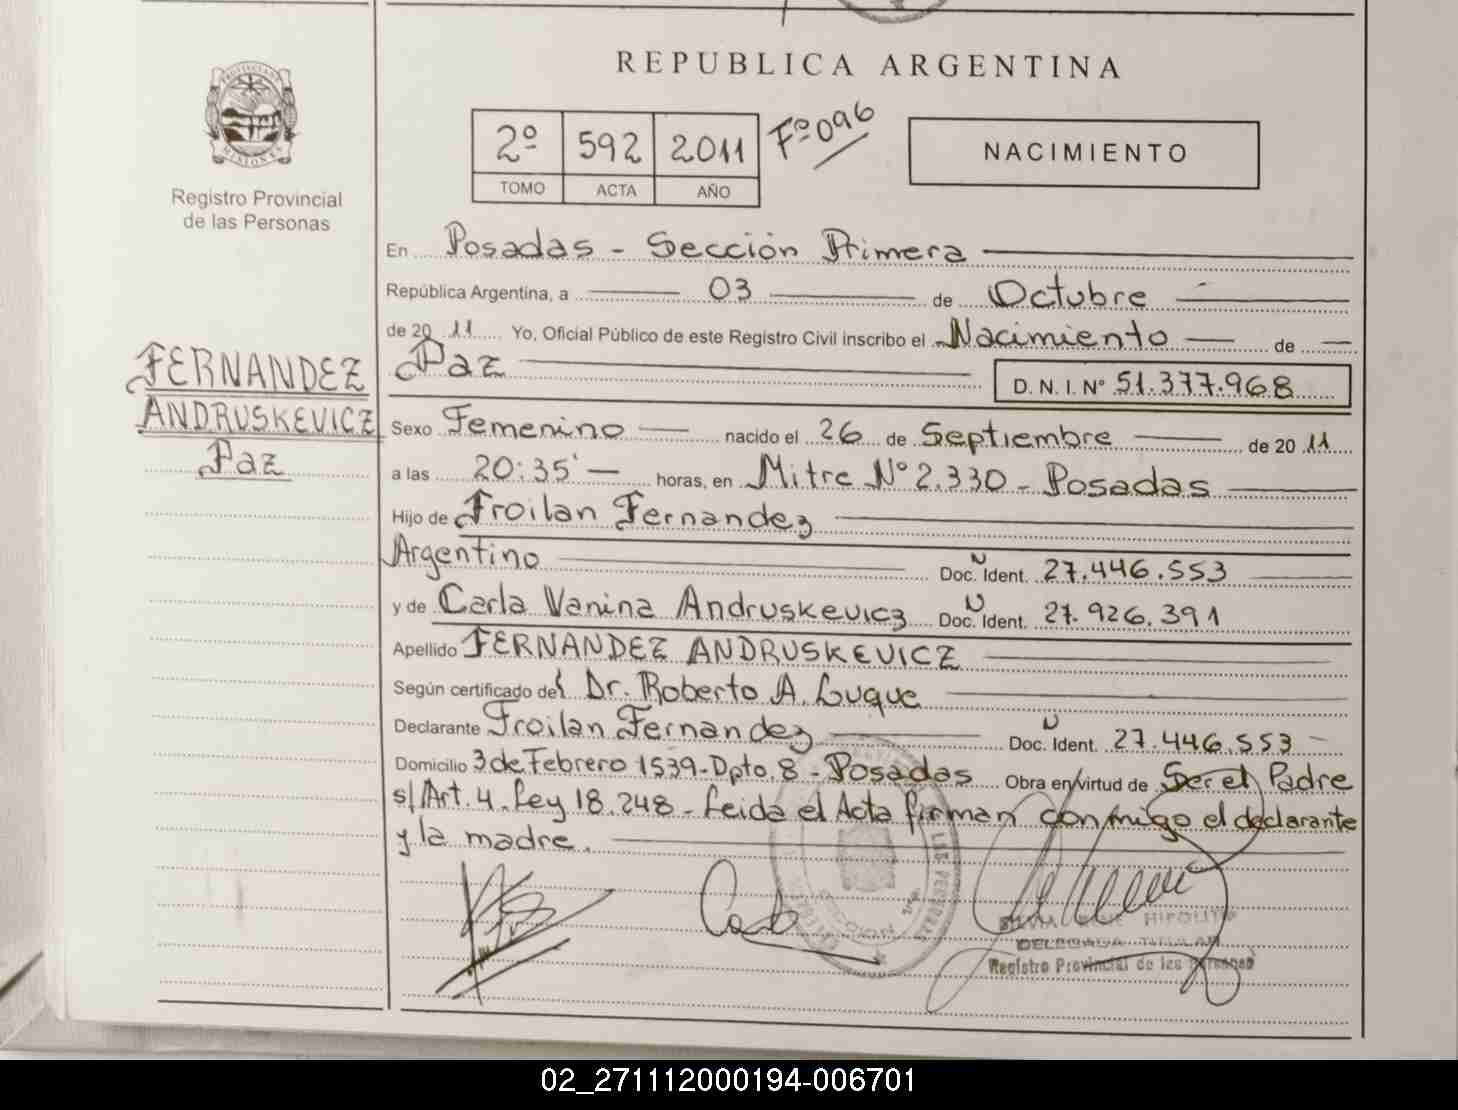 REPUBLICA ARGENTINA
PROVINCIA DE
MISIONES
Registro Provincial
de las Personas
2º 592 2011 Fº 096
TOMO ACTA AÑO
NACIMIENTO
FERNANDEZ
ANDRUSKEVICZ
Paz
En Posadas - Sección Primera
República Argentina, a 03 de Octubre
de 20 11 Yo, Oficial Público de este Registro Civil inscribo el Nacimiento de
Paz D. N. I. Nº 51.377.968
Sexo Femenino nacido el 26 de Septiembre de 20 11
a las 20:35' horas, en Mitre Nº 2.330 - Posadas
Hijo de Froilan Fernandez
Argentino Doc. Ident. 27.446.553
y de Carla Vanina Andruskevicz Doc. Ident. 27.926.391
Apellido FERNANDEZ ANDRUSKEVICZ
Según certificado del Dr. Roberto A. Luque
Declarante Froilan Fernandez Doc. Ident. 27.446.553
Domicilio 3 de Febrero 1539 - Dpto. 8 - Posadas Obra en virtud de Ser el Padre
s/ Art. 4 - Ley 18.248 - Leida el Acta firman conmigo el declarante
y la madre.
HIPOLITO
DELEGADA TITULAR
Registro Provincial de las Personas
02_271112000194-006701